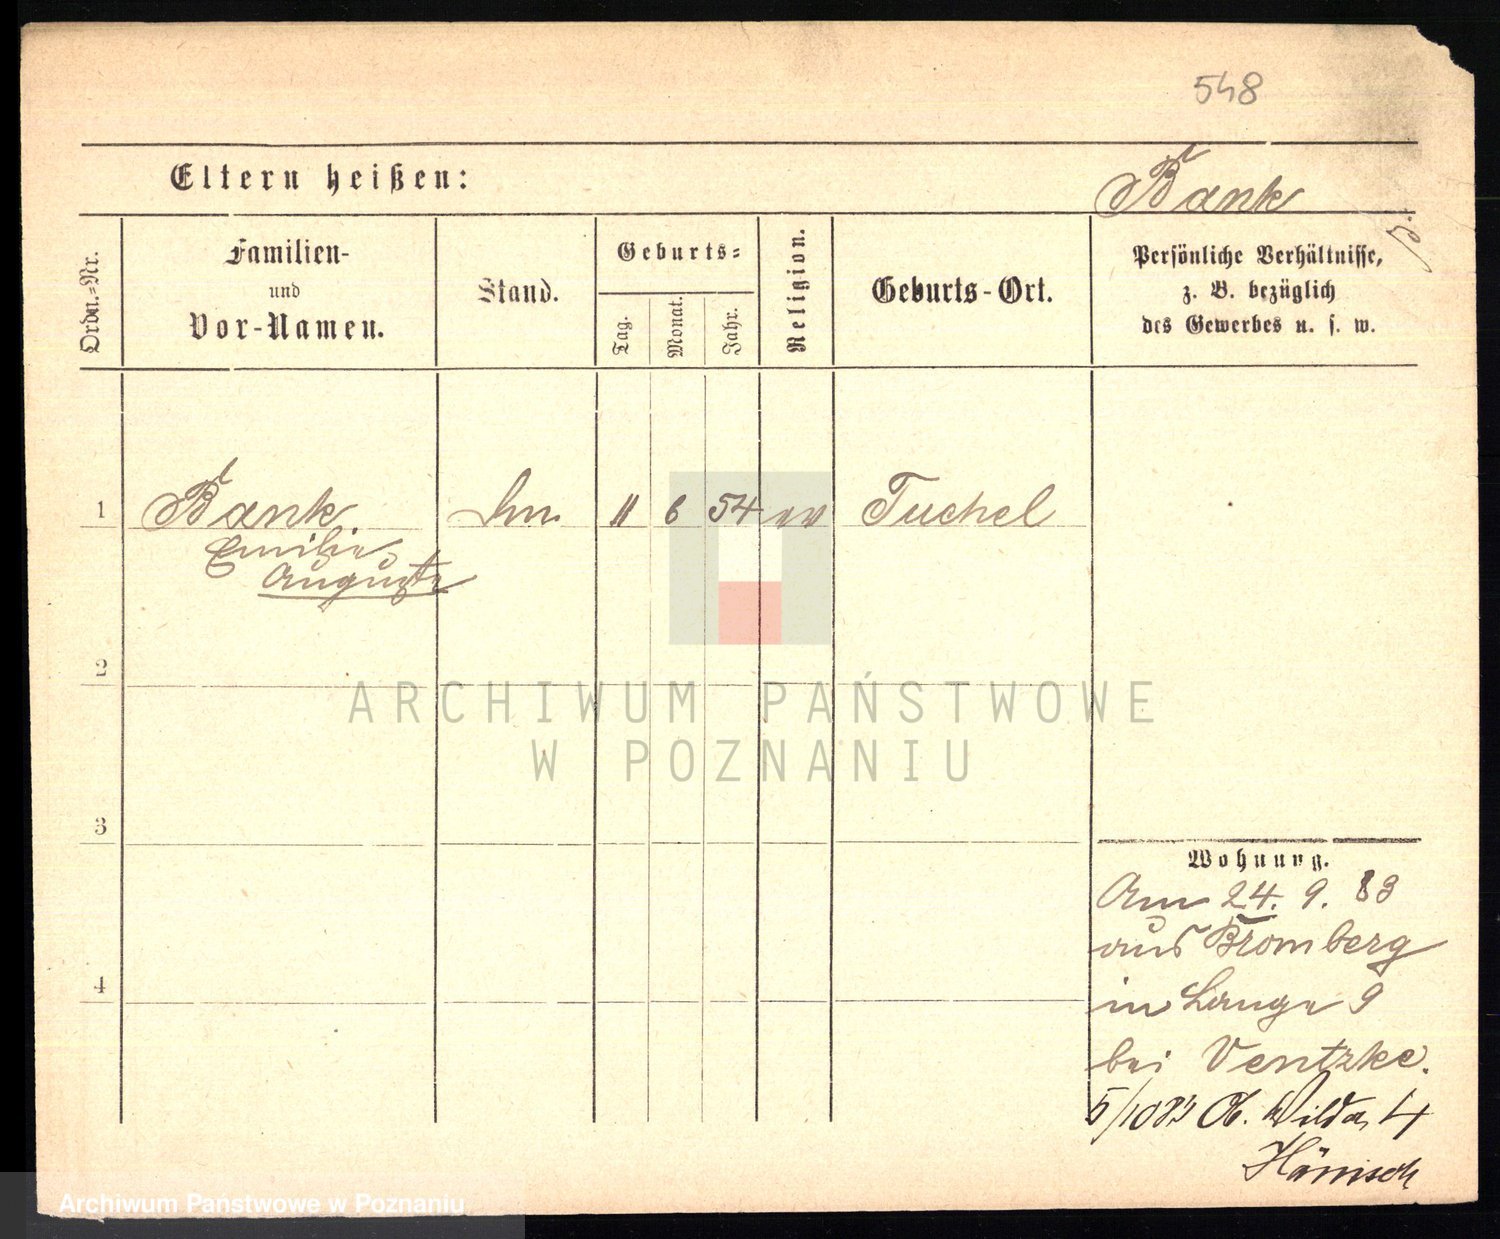 548
Eltern heißen:
Bank
Ordn.-Nr.
Familien-
und
Vor-Namen.
Stand.
Geburts-
Tag.
Monat.
Jahr.
Religion.
Geburts-Ort.
Persönliche Verhältnisse,
z. B. bezüglich
des Gewerbes u. s. w.
1 Bank 11 6 54 ev Tuchel
Emilie
Auguste
2
3
4
Wohnung.
Am 24. 9. 83
aus Bromberg
in Lange 9
bei Ventzke.
5/10 83 Ob. Wilda 4
Hänisch
ARCHIWUM PAŃSTWOWE
W POZNANIU
Archiwum Państwowe w Poznaniu